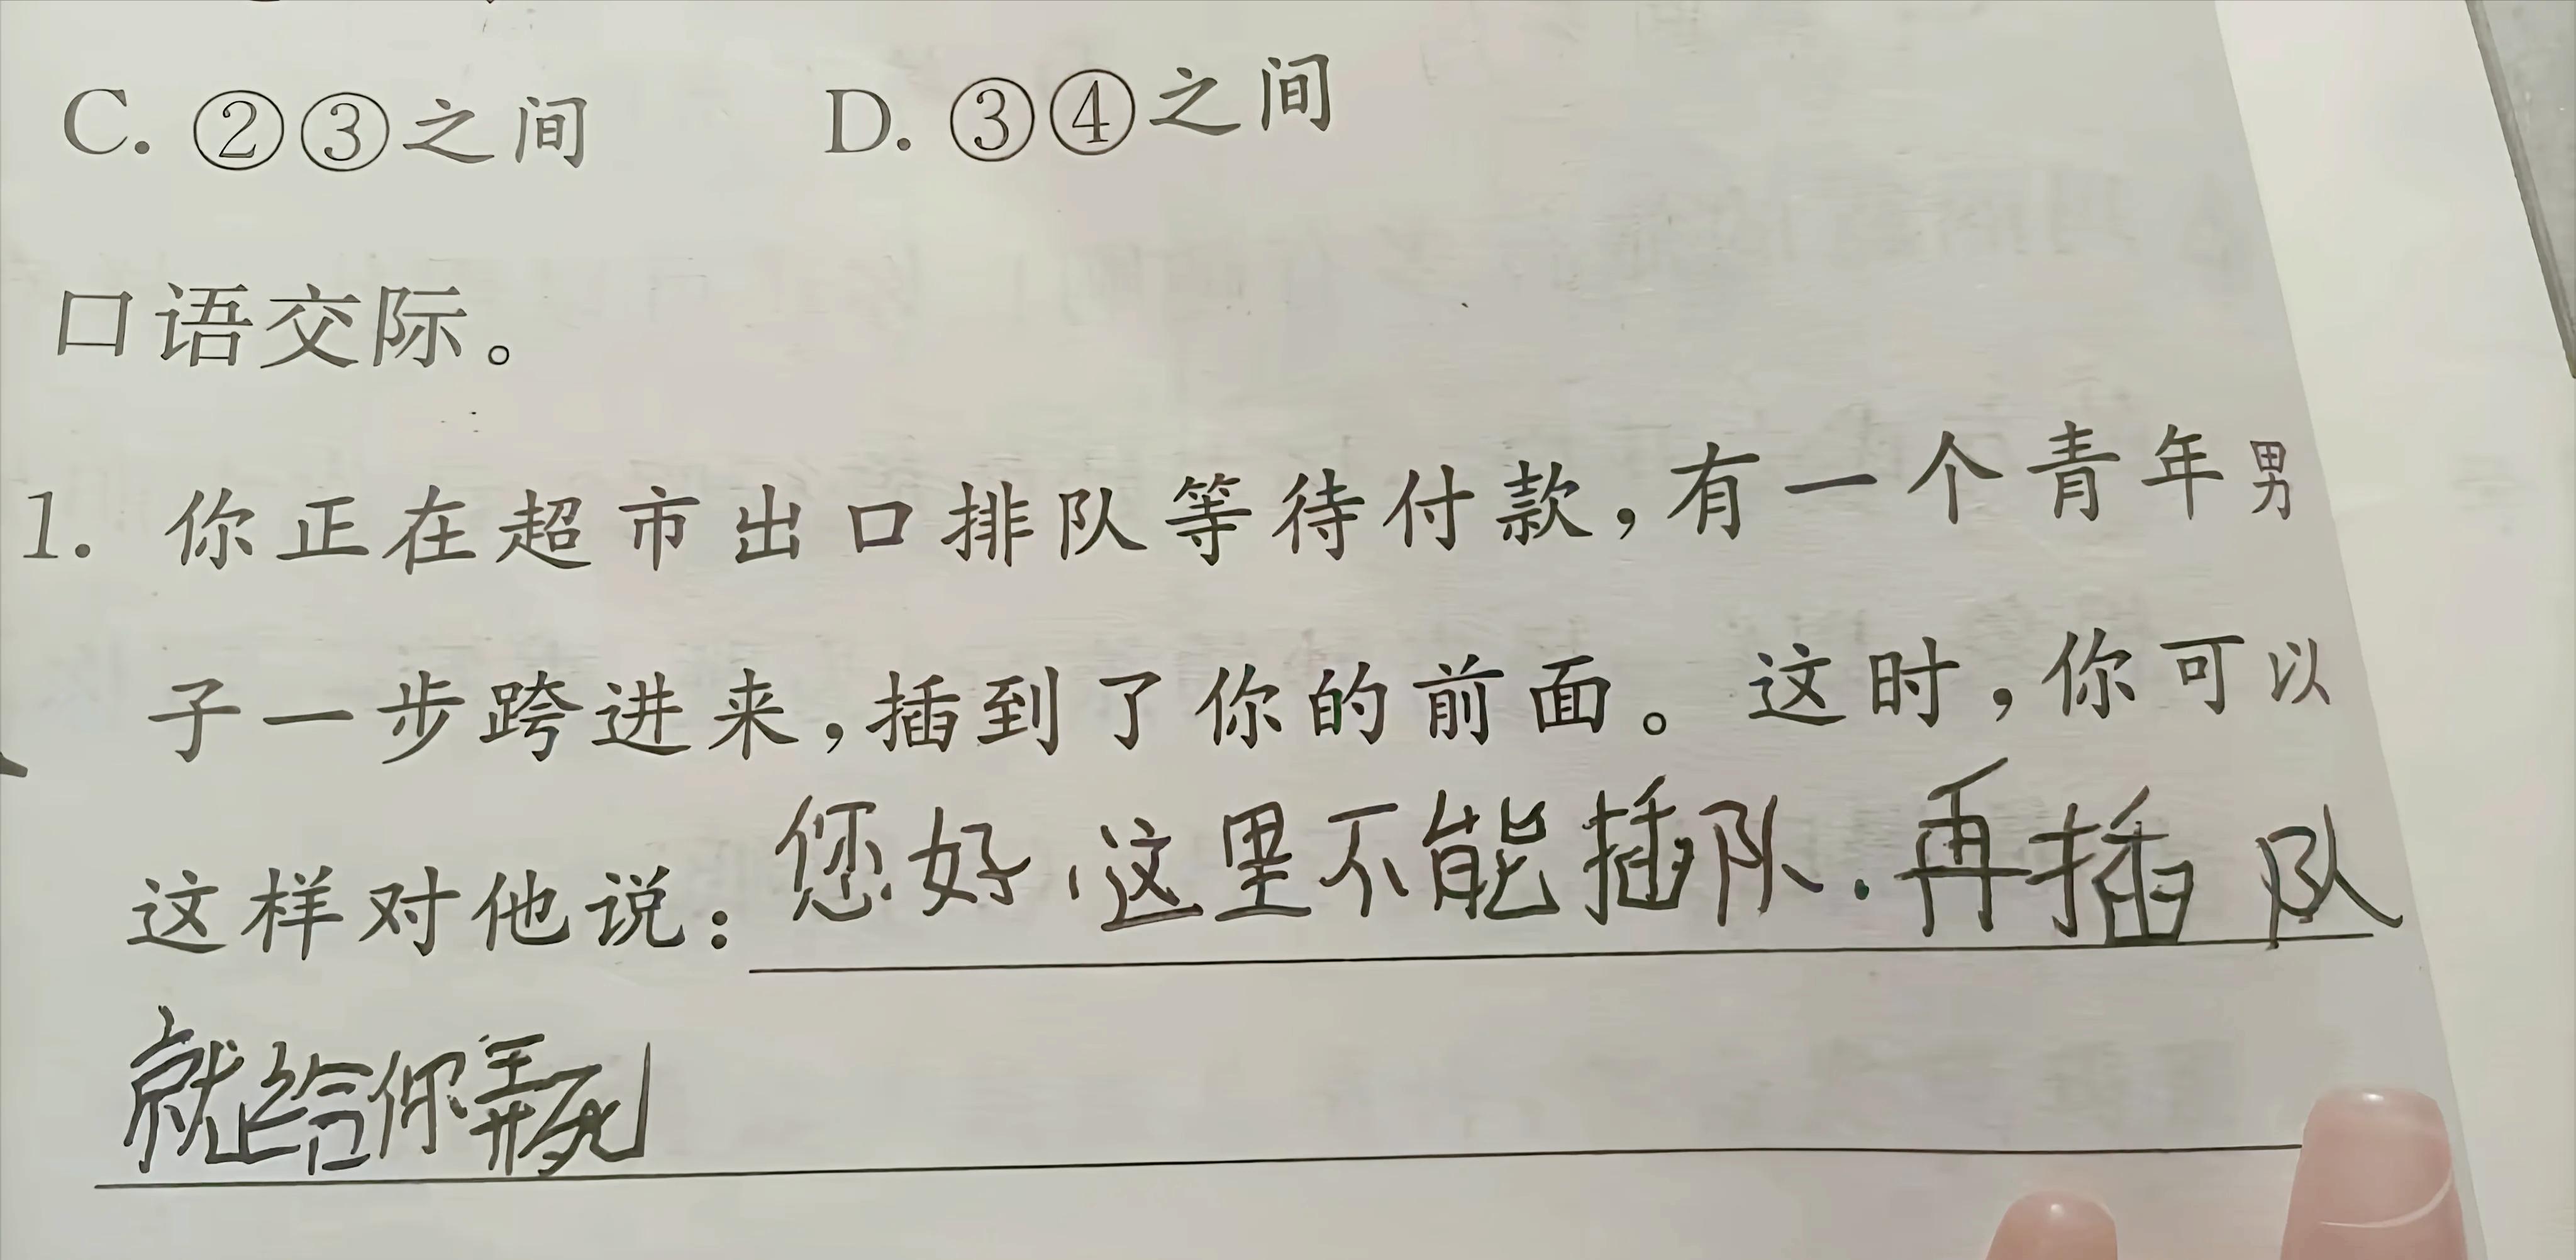 C. ②③之间 D. ③④之间
口语交际。
1. 你正在超市出口排队等待付款，有一个青年男
子一步跨进来，插到了你的前面。这时，你可以
这样对他说：您好，这里不能插队．再插队
就给你弄死